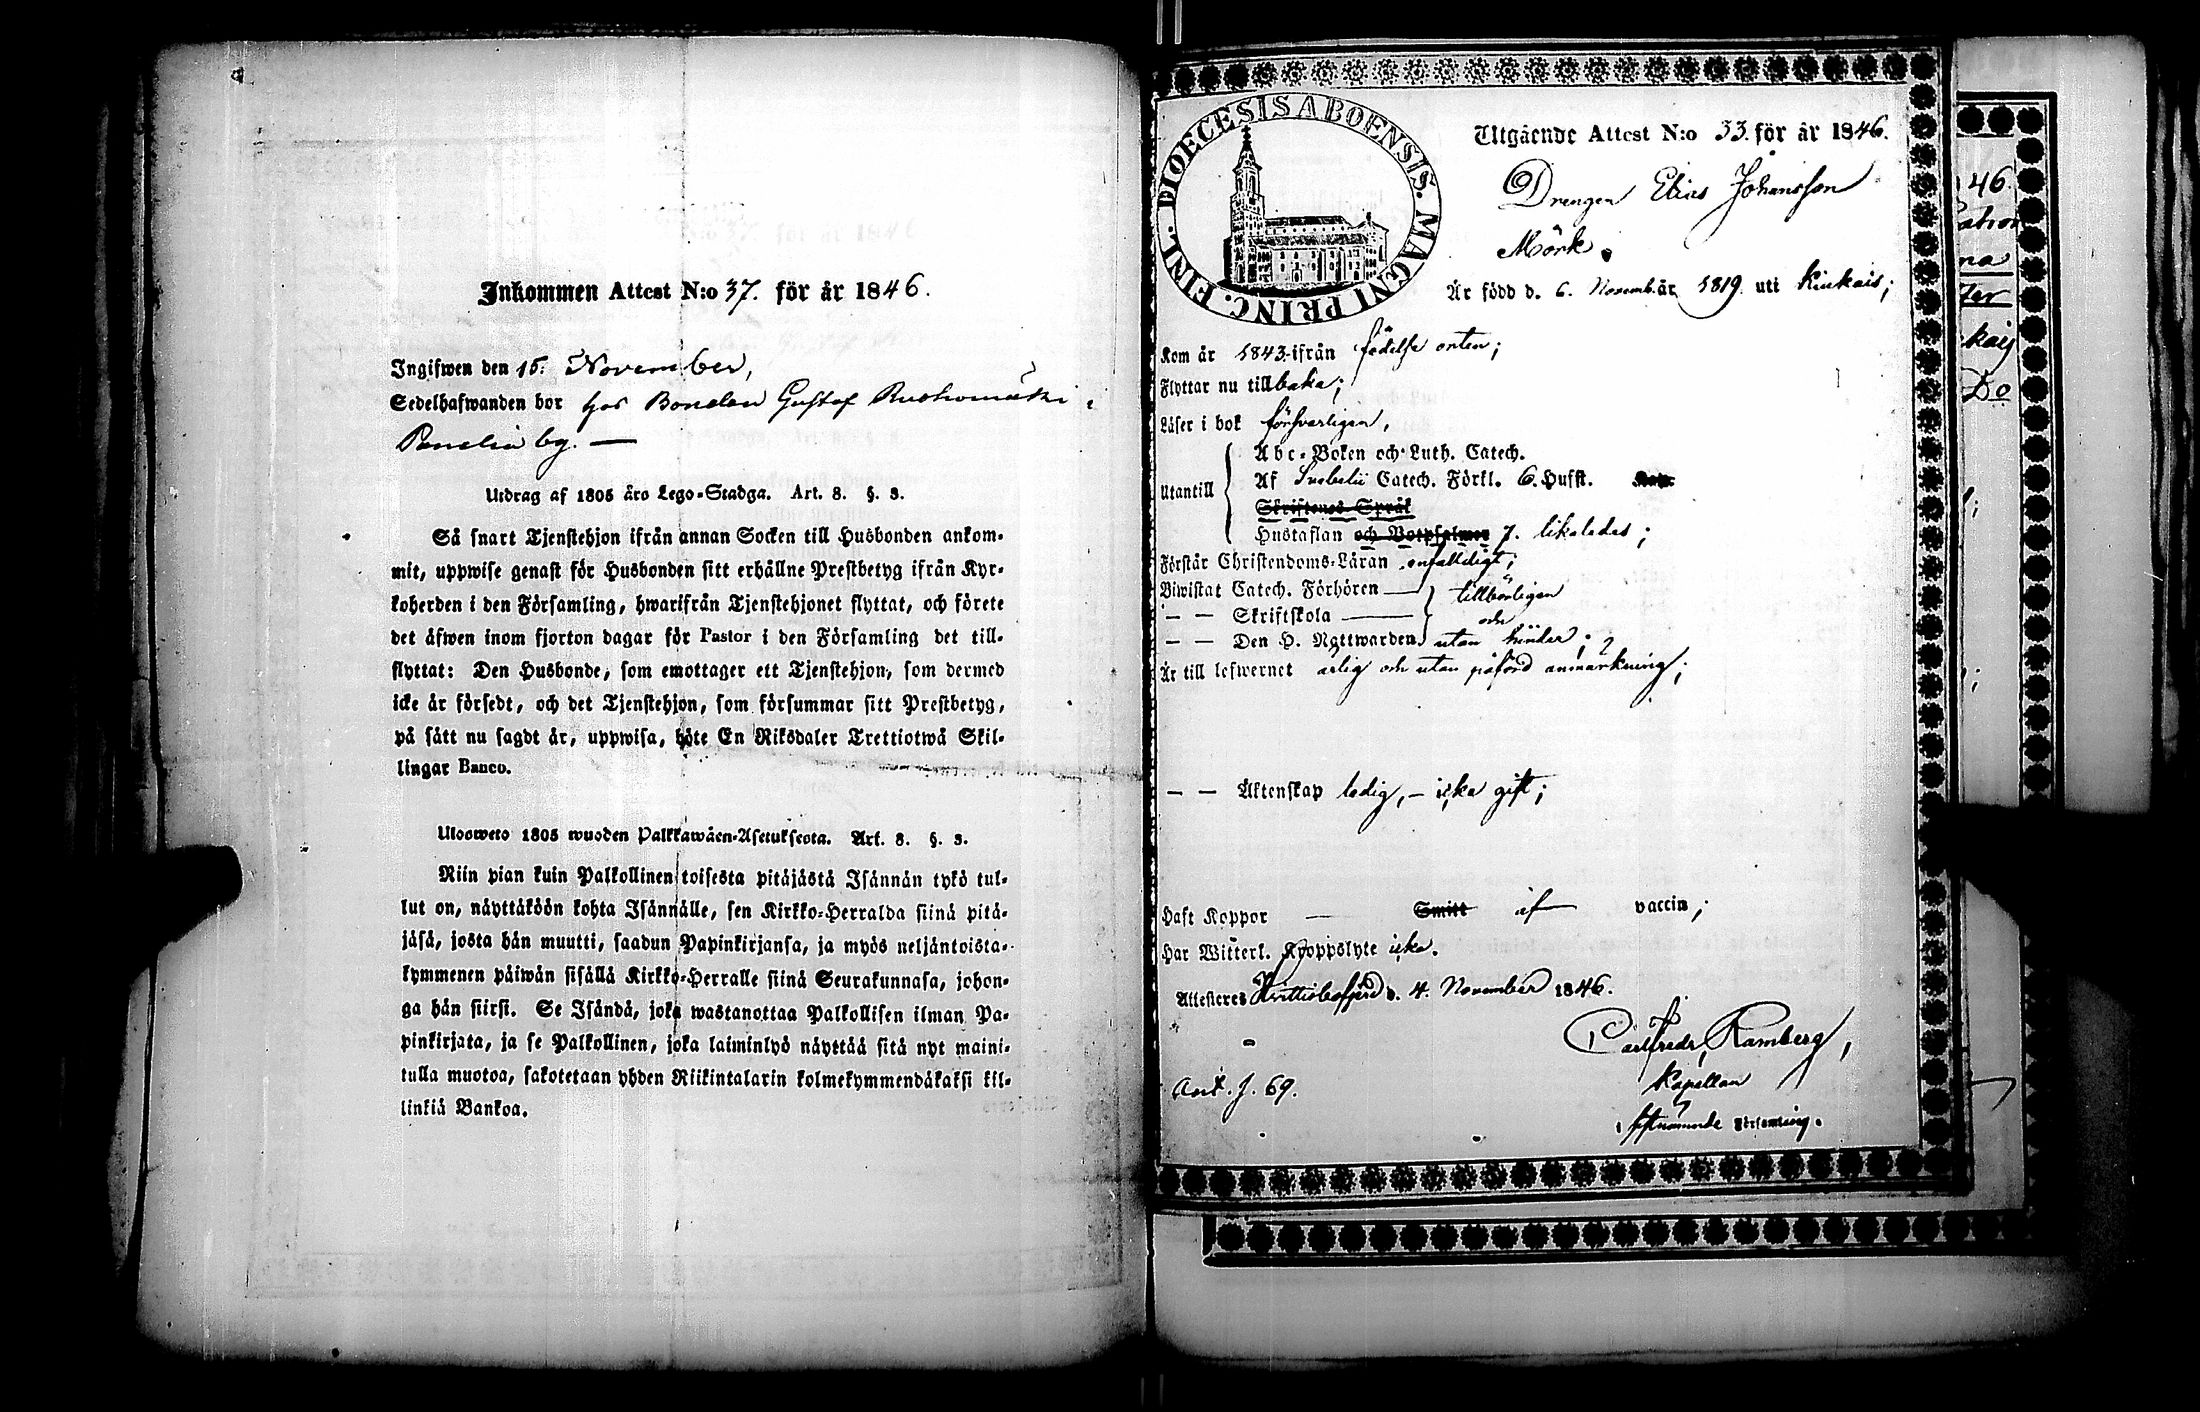 Inkommen Attest N:o 37. för år 1846.
Ingifwen den 15. November,
Sedelhafwanden bor hos Bonden Gustaf Ruohomäki i
Panelia by. —
Utdrag af 1805 års Lego-Stadga. Art. 8. §. 3.
Så snart Tjenstehjon ifrån annan Socken till Husbonden ankom-
mit, uppwise genast för Husbonden sitt erhållne Prestbetyg ifrån Kyr-
koherden i den Församling, hwarifrån Tjenstehjonet flyttat, och förete
det äfwen inom fjorton dagar för Pastor i den Församling det till-
flyttat: Den Husbonde, som emottager ett Tjenstehjon, som dermed
icke är försedt, och det Tjenstehjon, som försummar sitt Prestbetyg,
på sätt nu sagdt är, uppwisa, böte En Riksdaler Trettiotwå Skil-
lingar Banco.
Ulosweto 1805 wuoden Palkkawäen-Asetuksesta. Art. 8. §. 3.
Niin pian kuin Palkollinen toisesta pitäjästä Isännän tykö tul-
lut on, näyttäköön kohta Isännälle, sen Kirkko-Herralda siinä pitä-
jäsä, josta hän muutti, saadun Papinkirjansa, ja myös neljäntoista-
kymmenen päiwän sisällä Kirkko-Herralle siinä Seurakunnasa, johon-
ga hän siirsi. Se Isändä, joka wastanottaa Palkollisen ilman Pa-
pinkirjata, ja se Palkollinen, joka laiminlyö näyttää sitä nyt maini-
tulla muotoa, sakotetaan yhden Riikintalarin kolmekymmendäkaksi kil-
linkiä Bankoa.
DIOECESIS ABOENSIS. MAGNI PRINC. FINL.
Utgående Attest N:o 33. för år 1846.
Drengen Elias Johansson
Mörk.
Är född d. 6. Novemb. år 1819. uti Kiukais;
Kom år 1843. ifrån födelse orten;
Flyttar nu tillbaka;
Läser i bok försvarligen,
Abc-Boken och Luth. Catech.
Utantill Af Svebelii Catech. Förkl. 6. Hufst.
Skriftenes Språk
Hustaflan och Botpsalmer 7. likaledes;
Förstår Christendoms-Läran enfalldigt;
Biwistat Catech. Förhören — tillbörligen
— — Skriftskola — och
— — Den H. Nattwarden utan hinder;
Är till lefwernet ärlig och utan påförd anmärkning;
— — Äktenskap ledig, — icke gift;
Haft Koppor — Smitt af vaccin;
Har Witterl. Kroppslyte icke.
Attesteres Hvittisbofjärd d. 4. November 1846.
Carl Fredr. Ramberg,
Kapellan
Ant. f. 69.
i förenämnde Församling.
46
Do